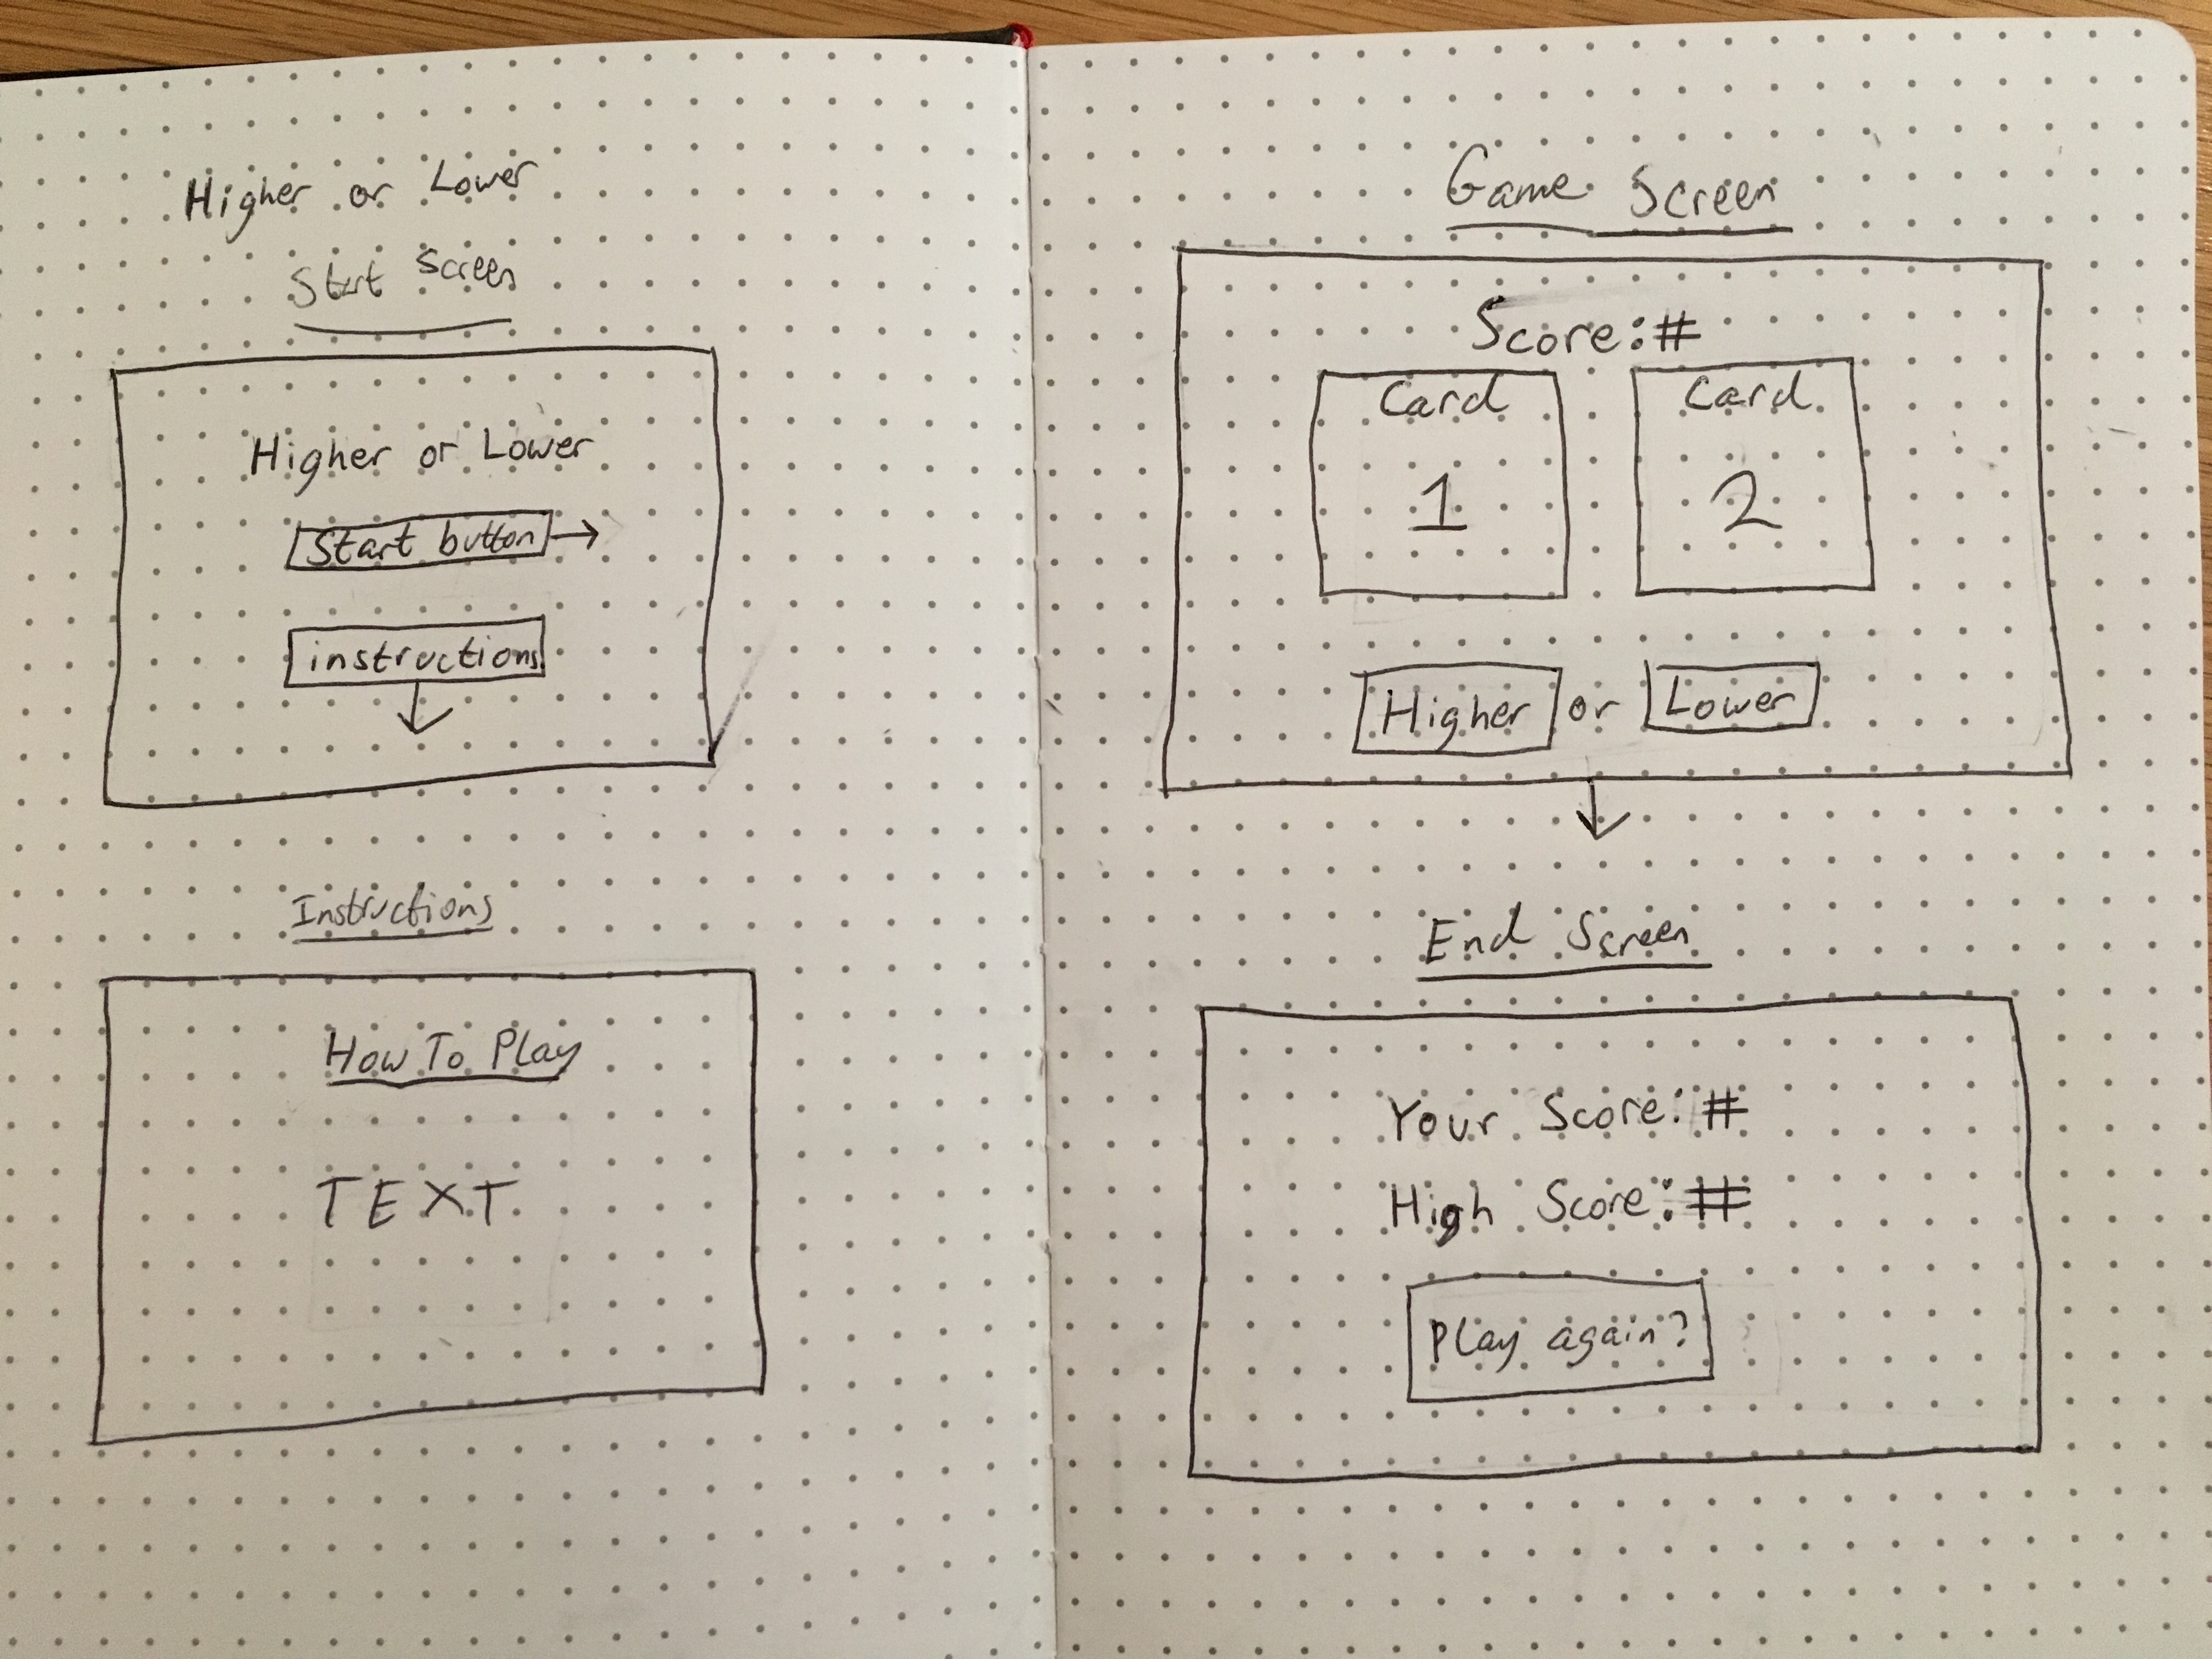 Higher or Lower
Start Screen
Higher or Lower
Start button
instructions
Instructions
How To Play
TEXT
Game Screen
Score:#
Card Card
1 2
Higher or Lower
End Screen
Your Score:#
High Score:#
Play again?